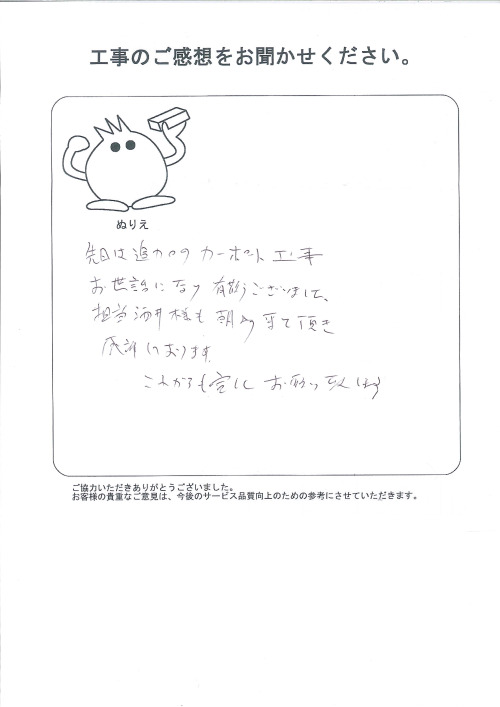 工事のご感想をお聞かせください。
ぬりえ
先日は追加のカーポート工事
お世話になり有難うございまして、
担当酒井様も朝 来て頂き
感謝しております。
これからも宜しくお願い致します
ご協力いただきありがとうございました。
お客様の貴重なご意見は、今後のサービス品質向上のための参考にさせていただきます。